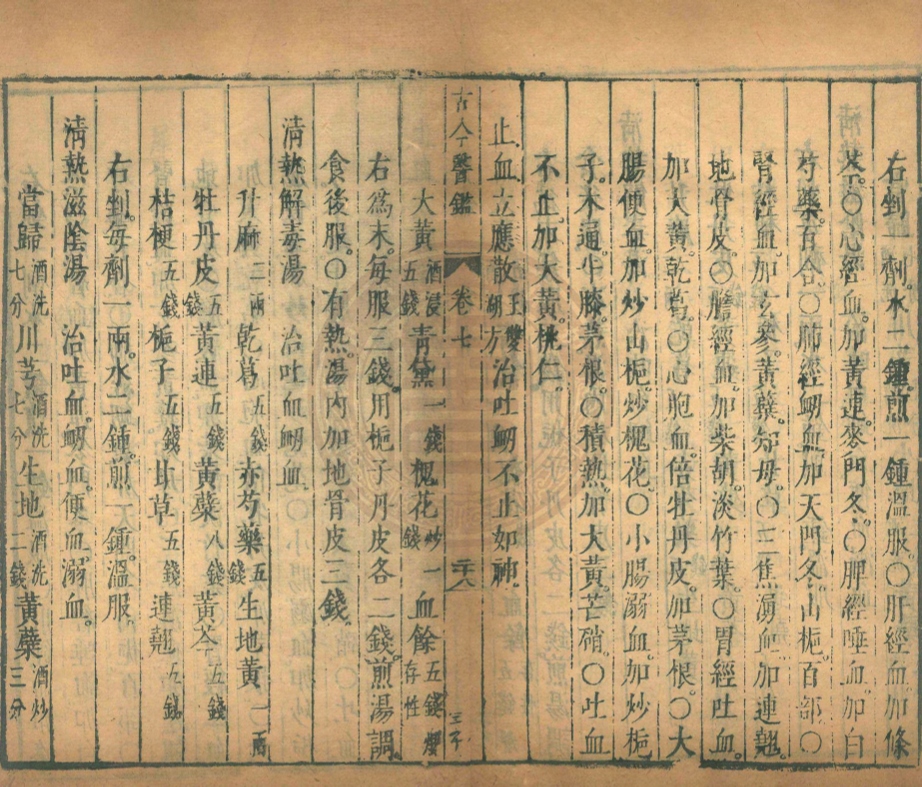 右剉一劑水二鍾煎一鍾溫服〇肝經血加條
芩〇心經血加黃連麥門冬〇脾經唾血加白
芍藥百合〇肺經衂血加天門冬山梔百部〇
腎經血加玄參黃蘗知母〇三焦湧血加連翹
地骨皮〇膽經血加柴胡淡竹葉〇胃經吐血
加大黃乾葛〇心胞血倍牡丹皮加茅根〇大
腸便血加炒山梔炒槐花〇小腸溺血加炒梔
子木通牛膝茅根〇積熱加大黃芒硝〇吐血
不止加大黃桃仁
止血立應散王雙湖方治吐衂不止如神
古今醫鑑 卷七 二十八
大黃酒浸五錢青黛一錢槐花炒一錢血餘五錢煆存性
右爲末每服三錢用梔子丹皮各二錢煎湯調
食後服〇有熱湯内加地骨皮三錢
清熱解毒湯 治吐血衂血
升麻二兩乾葛五錢赤芍藥五錢生地黃一兩
牡丹皮五錢黃連五錢黃蘗八錢黃芩五錢
桔梗五錢梔子五錢甘草五錢連翹五錢
右剉每劑一兩水二鍾煎一鍾溫服
清熱滋陰湯 治吐血衂血便血溺血
當歸酒洗七分川芎酒洗七分生地酒洗二錢黃蘗酒炒三分